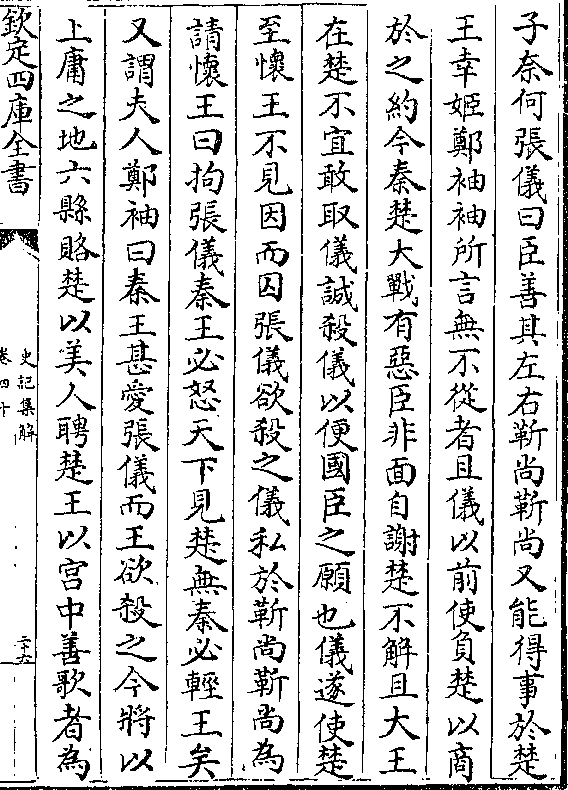 子奈何張儀曰臣善其左右靳尚靳尚又能得事於楚
王幸姬鄭袖袖所言無不從者且儀以前使負楚以商
於之約今秦楚大戰有惡臣非面自謝楚不解且大王
在楚不宜敢取儀誠殺儀以便國臣之願也儀遂使楚
至懷王不見因而囚張儀欲殺之儀私於靳尚靳尚為
請懷王曰拘張儀秦王必怒天下見楚無秦必輕王矣
又謂夫人鄭袖曰秦王甚愛張儀而王欲殺之今將以
上庸之地六縣賂楚以美人聘楚王以宮中善歌者為
欽定四庫全書
史記集解
卷四十
二十六